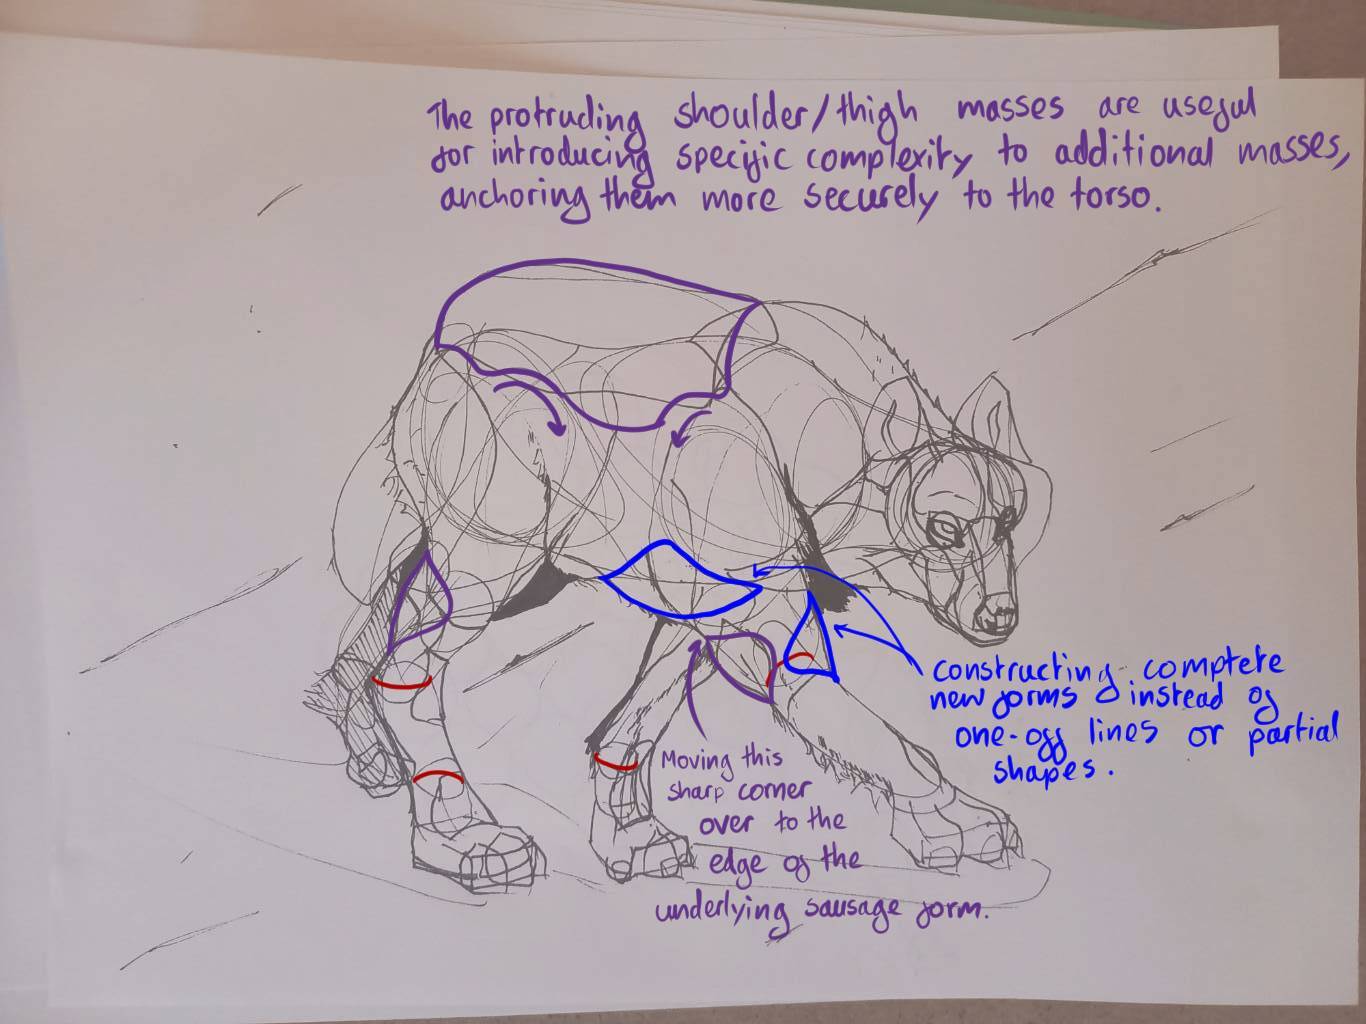 The protruding shoulder/thigh masses are useful
for introducing specific complexity to additional masses,
anchoring them more securely to the torso.
constructing complete
new forms instead of
one-off lines or partial
shapes.
Moving this
sharp corner
over to the
edge of the
underlying sausage form.